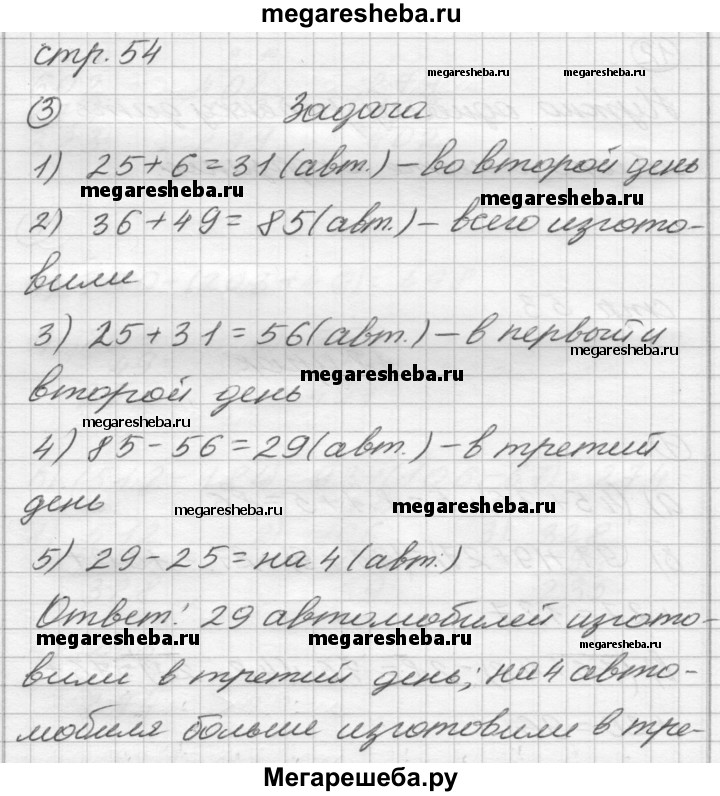 megaresheba.ru
стр. 54
megaresheba.ru megaresheba.ru
③ Задача
1) 25+6=31(авт.) – во второй день
megaresheba.ru megaresheba.ru
2) 36+49= 85(авт.) – всего изгото-
вили
3) 25+31=56(авт.) – в первый и
megaresheba.ru
megaresheba.ru
второй день
megaresheba.ru
4) 85-56=29(авт.) – в третий
день
megaresheba.ru megaresheba.ru
5) 29-25=на 4 (авт.)
Ответ: 29 автомобилей изгото-
megaresheba.ru megaresheba.ru megaresheba.ru
вили в третий день; на 4 авто-
мобиля больше изготовили в тре-
Мегарешеба.ру